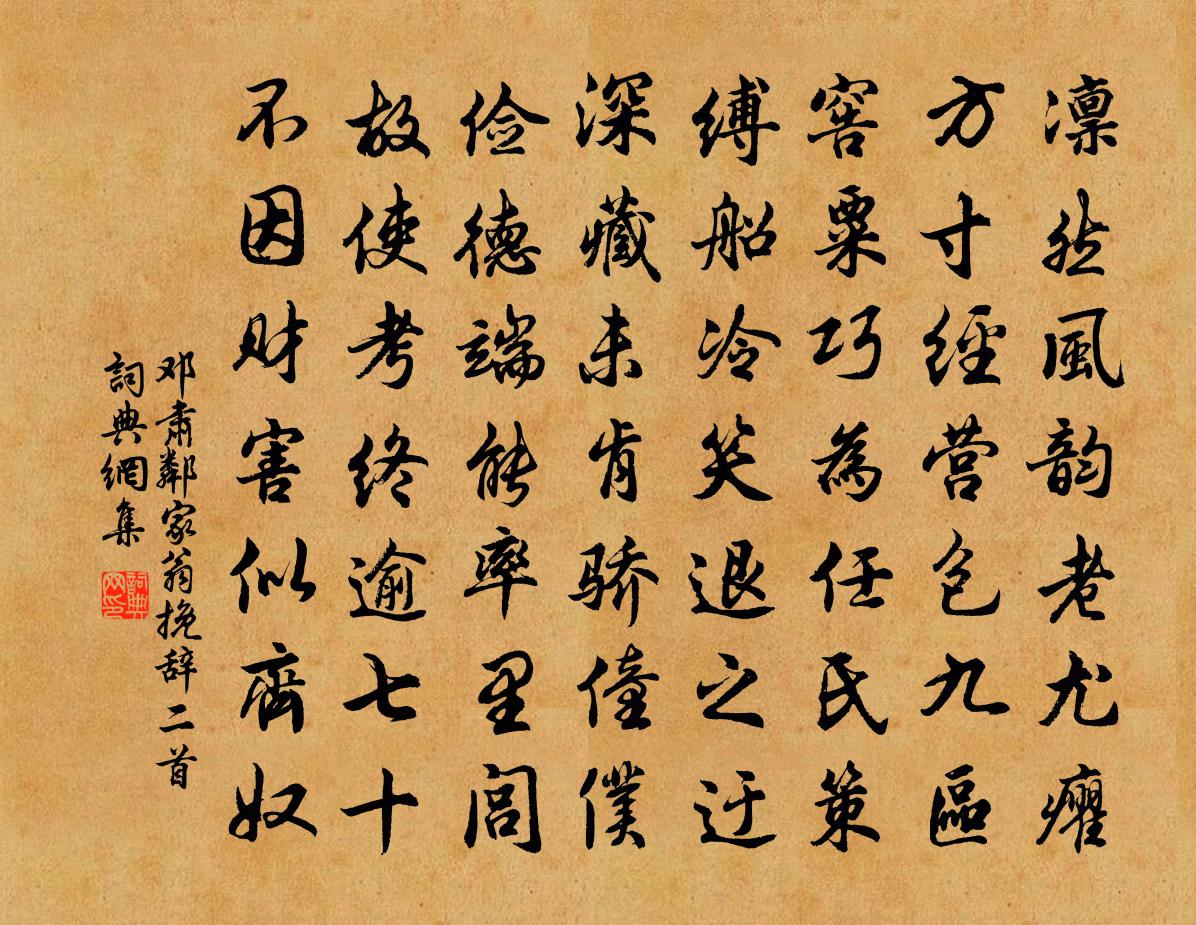 凛然風韵老尤癯
方寸經营包九區
窖粟巧為任氏策
縛船冷笑退之迂
深藏未肯骄僮僕
俭德端能率里閭
故使考终逾七十
不因财害似齊奴
邓肃鄰家翁挽辞二首
詞典網集
詞典网印